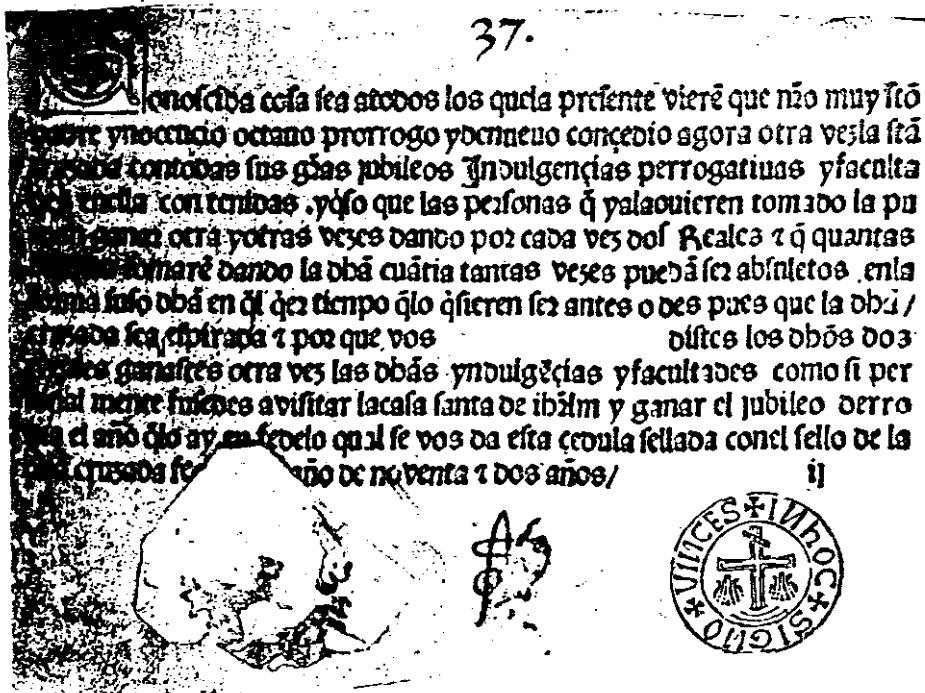 37.
Conoscida cosa sea atodos los quela presente vierē que nr̄o muy stō
padre ynocencio octauo prorrogo ydenueuo concedio agora otra vez la stā
contodas sus grās jubileos Indulgençias perrogatiuas yfaculta
enella contenidas . yq̄so que las personas q̄ yalaouieren tomado la pu
ganar otra yotras vezes dando por cada vez dos Reales ⁊ q̄ quantas
tomarē dando la dbā cuātia tantas vezes puedā ser absueletos enla
forma suso dbā en q̄l q̄er tienpo q̄lo q̄sieren ser antes o des pues que la dbā /
crusada sea espirada ⁊ por que vos distes los dbōs dos
ganastes otra vez las dbās yndulgēçias yfacultades como si per
mente fuesedes avisitar lacasa santa de ibrlm y ganar el jubileo derro
el año q̄lo ay en fedelo qual se vos da esta cedula sellada conel sello de la
crusada año de noventa ⁊ dos años/ ij
IN HOC SIGNO VINCES